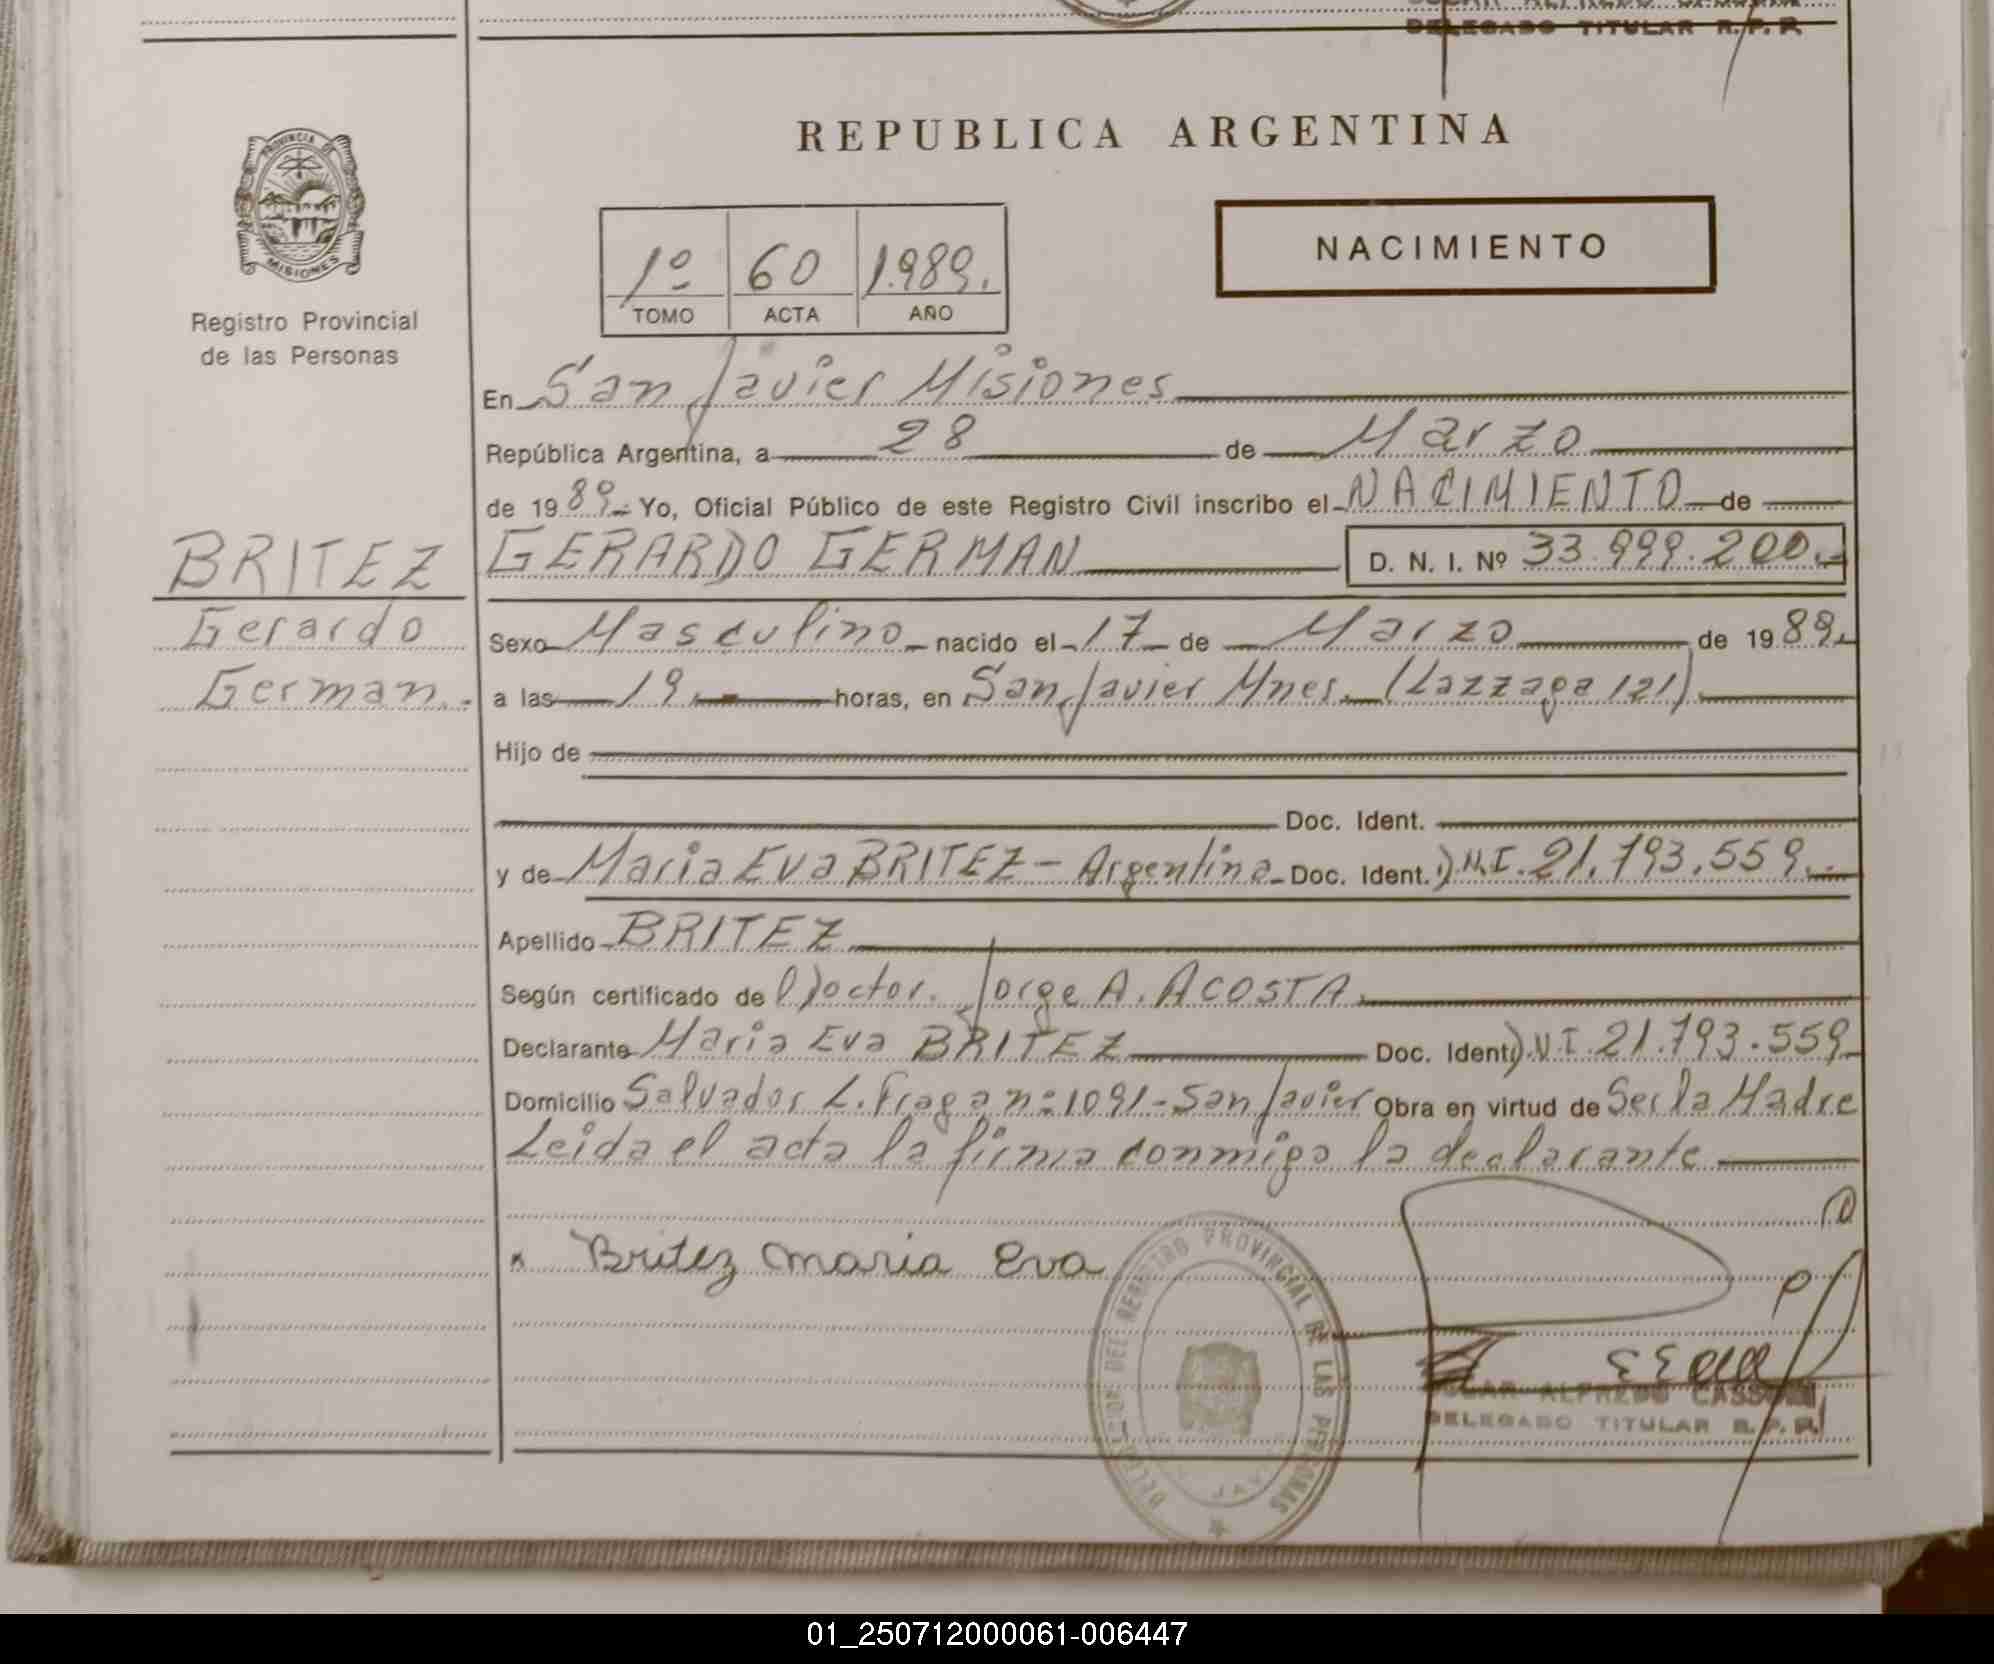 DELEGADO TITULAR R.P.P.
PROVINCIA DE
MISIONES
Registro Provincial
de las Personas
REPUBLICA ARGENTINA
NACIMIENTO
1º 60 1.989.
TOMO ACTA AÑO
En San Javier Misiones
República Argentina, a 28 de Marzo
de 1989.- Yo, Oficial Público de este Registro Civil inscribo el NACIMIENTO de
BRITEZ
Gerardo
German.-
GERARDO GERMAN D. N. I. Nº 33.999.200.-
Sexo Masculino nacido el 17 de Marzo de 1989.
a las 19 horas, en San Javier Mnes. (Lazzaga 121).
Hijo de
Doc. Ident.
y de Maria Eva BRITEZ - Argentina Doc. Ident. D.N.I. 21.793.559.
Apellido BRITEZ
Según certificado de Doctor. Jorge A. ACOSTA.
Declarante Maria Eva BRITEZ Doc. Ident. D.N.I. 21.793.559
Domicilio Salvador L. Fraga nº 1091 - San Javier Obra en virtud de Ser la Madre
Leida el acta la firma conmigo la declarante
Britez Maria Eva
DEL REGISTRO PROVINCIAL DE LAS PERSONAS
OSCAR ALFREDO
DELEGADO TITULAR R.P.P.
01_250712000061-006447